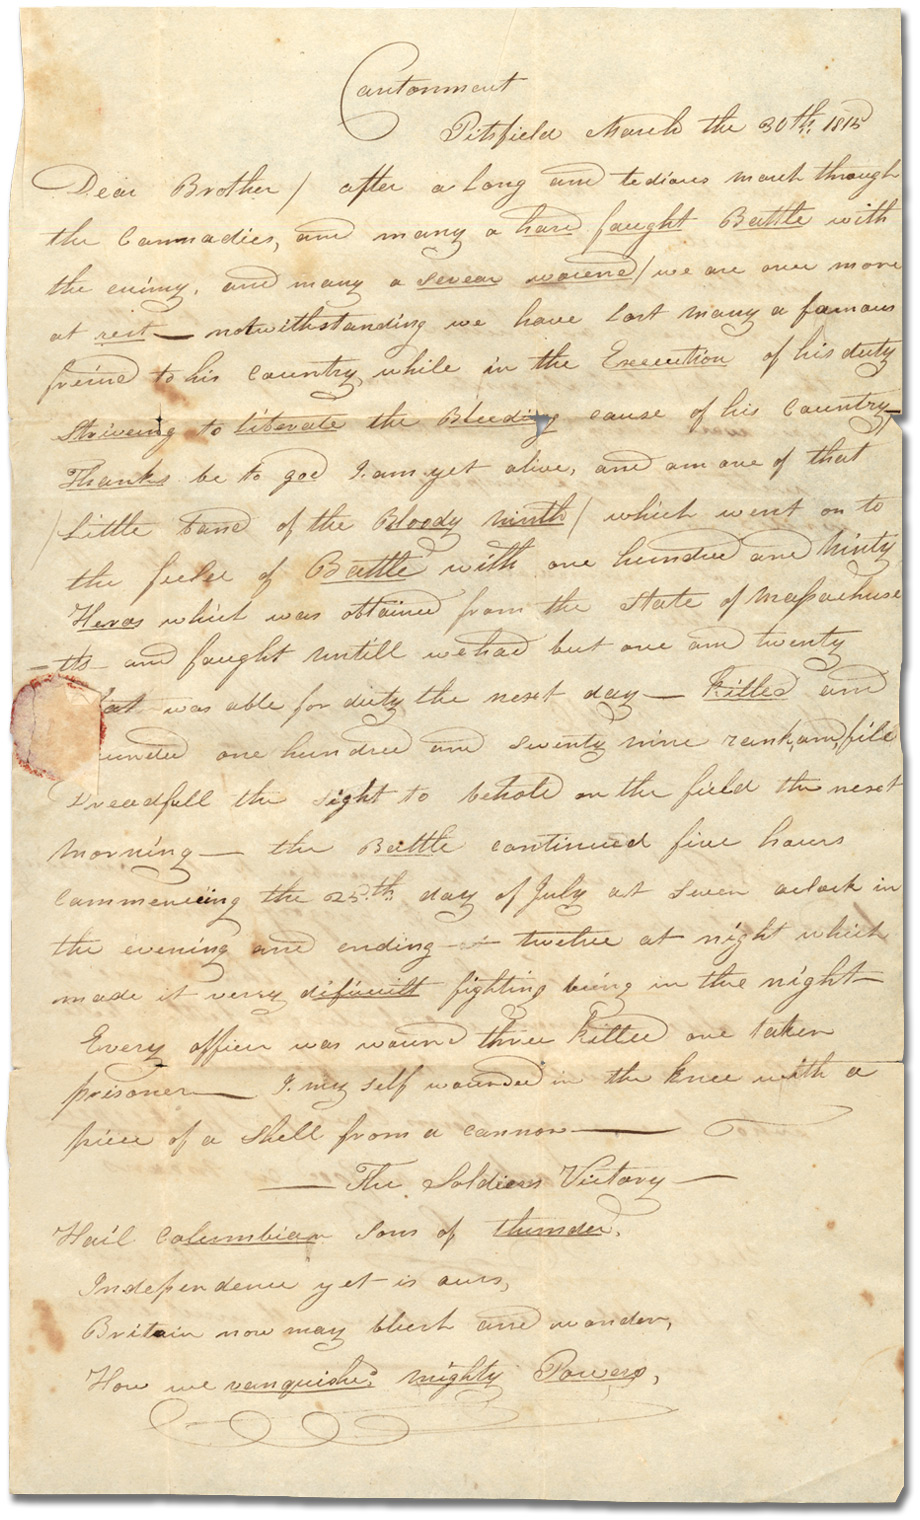 Cantonment
Pitsfield March the 30th. 1815
Dear Brother / after a long and tedious march through
the Cannadies, and many a hard faught Battle with
the enimy, and many a sevear wound / we are once more
at rest — notwithstanding we have lost many a famous
freind to his Country while in the Execution of his duty
Striveing to liberate the Bleeding cause of his Country —
Thanks be to god I am yet alive, and am one of that
/ Little band of the Bloody ninth / which went on to
the feeld of Battle with one hundred and Ninty
Heros which was obtained from the State of Massachuse
-tts- and faught untill we had but one and twenty
that was able for duty the next day — Killed and
wounded one hundred and seventy nine rank and file
Dreadfull the sight to behold on the field the next
Morning — the Battle continued five hours
Commenceing the 25th. day of July at seven aclock in
the evening and ending at twelve at night which
made it verry dificuilt fighting being in the night —
Every officer was wound three Killed one taken
prisoner — I my self wounded in the knee with a
piece of a Shell from a cannon —
— The Soldiers Victory —
Hail Columbian Sons of thunder,
Independence yet is ours,
Britain now may blush and wonder,
How we vanquished mighty Powers,